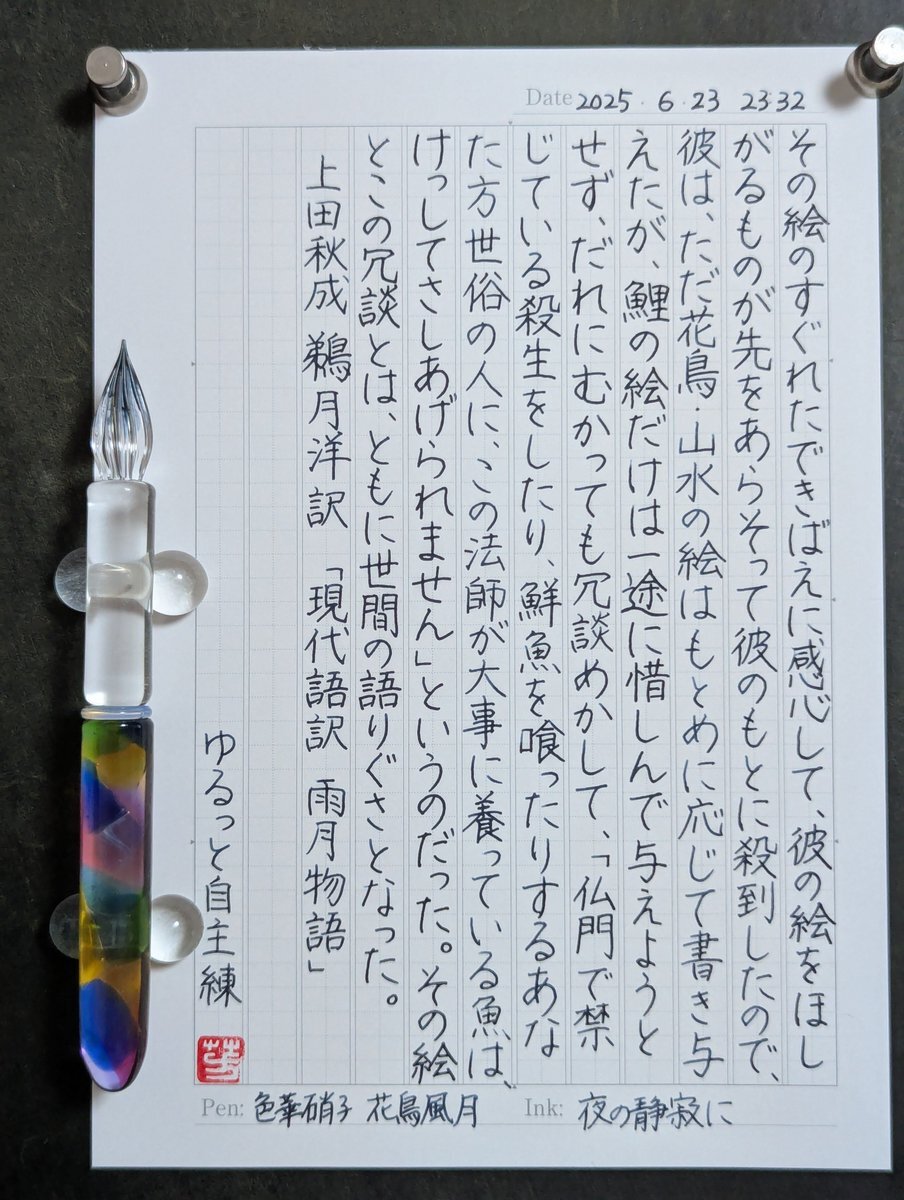 Date 2025・6・23 23:32
その絵のすぐれたできばえに感心して、彼の絵をほし
がるものが先をあらそって彼のもとに殺到したので、
彼は、ただ花鳥・山水の絵はもとめに応じて書き与
えたが、鯉の絵だけは一途に惜しんで与えようと
せず、だれにむかっても冗談めかして、「仏門で禁
じている殺生をしたり、鮮魚を喰ったりするあな
た方世俗の人に、この法師が大事に養っている魚は、
けっしてさしあげられません」というのだった。その絵
とこの冗談とは、ともに世間の語りぐさとなった。
上田秋成 鵜月洋訳 「現代語訳 雨月物語」
ゆるっと自主練
Pen: 色華硝子 花鳥風月 Ink: 夜の静寂に